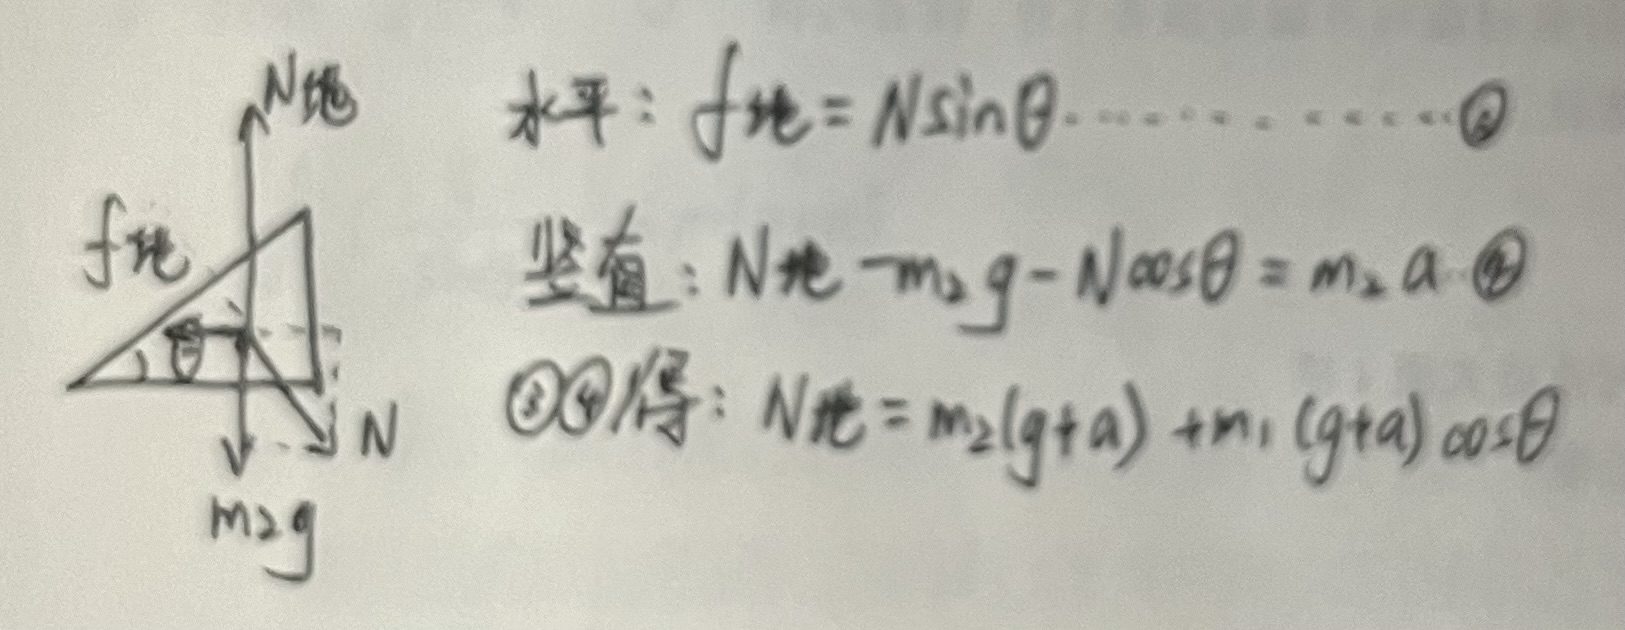 N地
f地
θ
N
m₂g
水平: f地 = N sinθ ············ ③
竖直: N地 - m₂g - N cosθ = m₂a ④
③④得: N地 = m₂(g+a) + m₁(g+a) cosθ